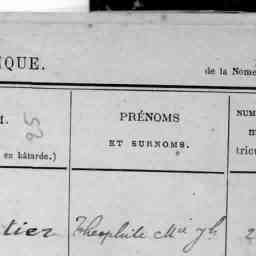 NQUE.
de la Nome
M.
25
en bâtarde.)
PRÉNOMS
ET SURNOMS.
NUM
m
tricu
tier
Theophile Mie Jh
2